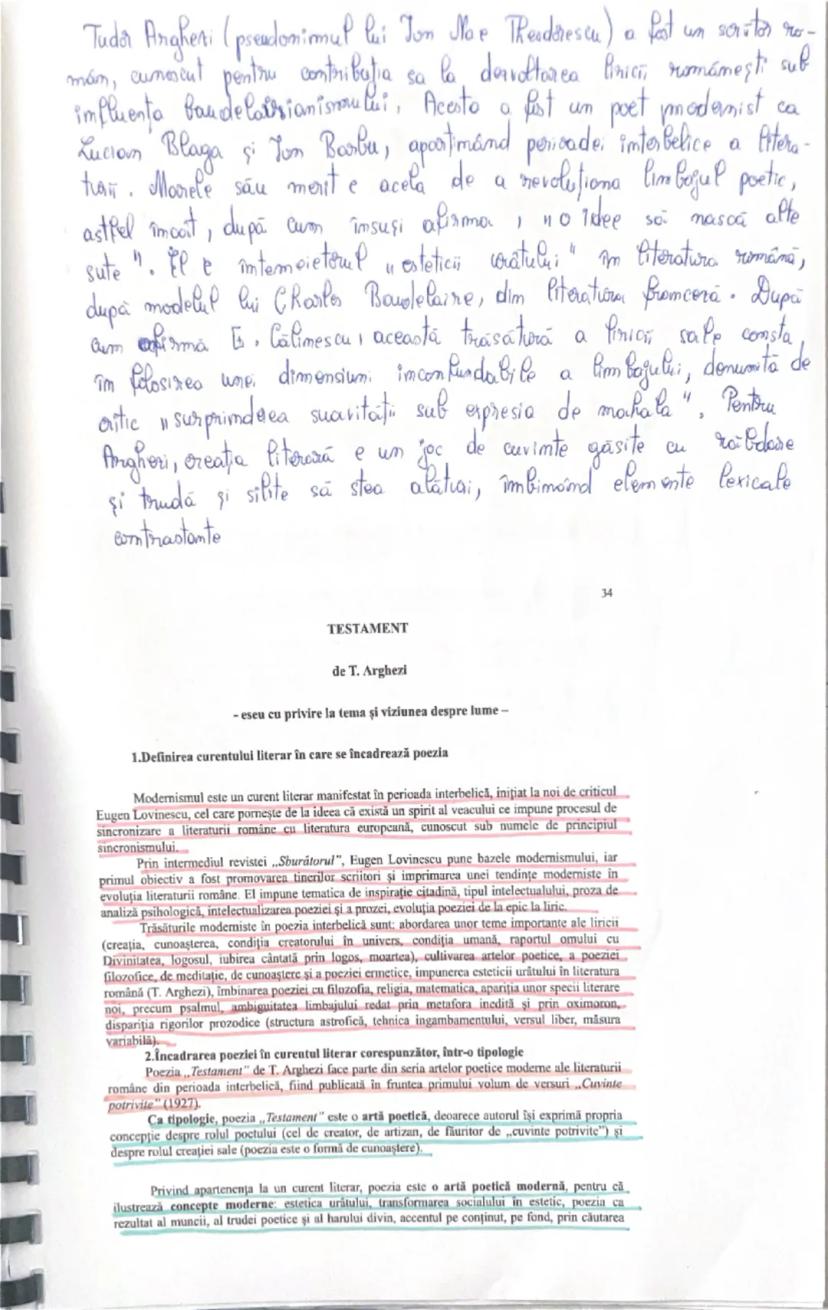 Tudor Argheri (pseudonimul lui Ion Nae Theodorescu) a fost un scriitor ro-
mân, cunoscut pentru contribuția sa la dezvoltarea liricii românești sub
influența baudelairianismului. Acesta a fost un poet modernist ca
Lucian Blaga și Ion Barbu, aparținând perioadei interbelice a litera-
turii. Marele său merit e acela de a revoluționa limbajul poetic,
astfel încât, după cum însuși afirma, „o idee să nască alte
sute". El e întemeietorul „esteticii urâtului" în literatura română,
după modelul lui Charles Baudelaire, din literatura franceză. După
cum afirmă G. Călinescu, această trăsătură a liricii sale consta
în folosirea unei dimensiuni inconfundabile a limbajului, denumită de
critic „surprinderea suavității sub expresia de mahala". Pentru
Argheri, creația literară e un joc de cuvinte găsite cu răbdare
și trudă și silite să stea alături, îmbinând elemente lexicale
contrastante
34
TESTAMENT
de T. Arghezi
- eseu cu privire la tema și viziunea despre lume –
1.Definirea curentului literar în care se încadrează poezia
Modernismul este un curent literar manifestat în perioada interbelică, inițiat la noi de criticul
Eugen Lovinescu, cel care pornește de la ideea că există un spirit al veacului ce impune procesul de
sincronizare a literaturii române cu literatura europeană, cunoscut sub numele de principiul
sincronismului.
Prin intermediul revistei „Sburătorul", Eugen Lovinescu pune bazele modernismului, iar
primul obiectiv a fost promovarea tinerilor scriitori și imprimarea unei tendințe moderniste în
evoluția literaturii române. El impune tematica de inspirație citadină, tipul intelectualului, proza de
analiză psihologică, intelectualizarea poeziei și a prozei, evoluția poeziei de la epic la liric.
Trăsăturile moderniste în poezia interbelică sunt: abordarea unor teme importante ale liricii
(creația, cunoașterea, condiția creatorului în univers, condiția umană, raportul omului cu
Divinitatea, logosul, iubirea cântată prin logos, moartea), cultivarea artelor poetice, a poeziei
filozofice, de meditație, de cunoaștere și a poeziei ermetice, impunerea esteticii urâtului în literatura
română (T. Arghezi), îmbinarea poeziei cu filozofia, religia, matematica, apariția unor specii literare
noi, precum psalmul, ambiguitatea limbajului redat prin metafora inedită și prin oximoron,
dispariția rigorilor prozodice (structura astrofică, tehnica ingambamentului, versul liber, măsura
variabilă).
2.Încadrarea poeziei în curentul literar corespunzător, într-o tipologie
Poezia „Testament" de T. Arghezi face parte din seria artelor poetice moderne ale literaturii
române din perioada interbelică, fiind publicată în fruntea primului volum de versuri „Cuvinte
potrivite" (1927).
Ca tipologie, poezia „Testament" este o artă poetică, deoarece autorul își exprimă propria
concepție despre rolul poetului (cel de creator, de artizan, de făuritor de „cuvinte potrivite") și
despre rolul creației sale (poezia este o formă de cunoaștere).
Privind apartenența la un curent literar, poezia este o artă poetică modernă, pentru că
ilustrează concepte moderne: estetica urâtului, transformarea socialului în estetic, poezia ca
rezultat al muncii, al trudei poetice și al harului divin, accentul pe conținut, pe fond, prin căutarea